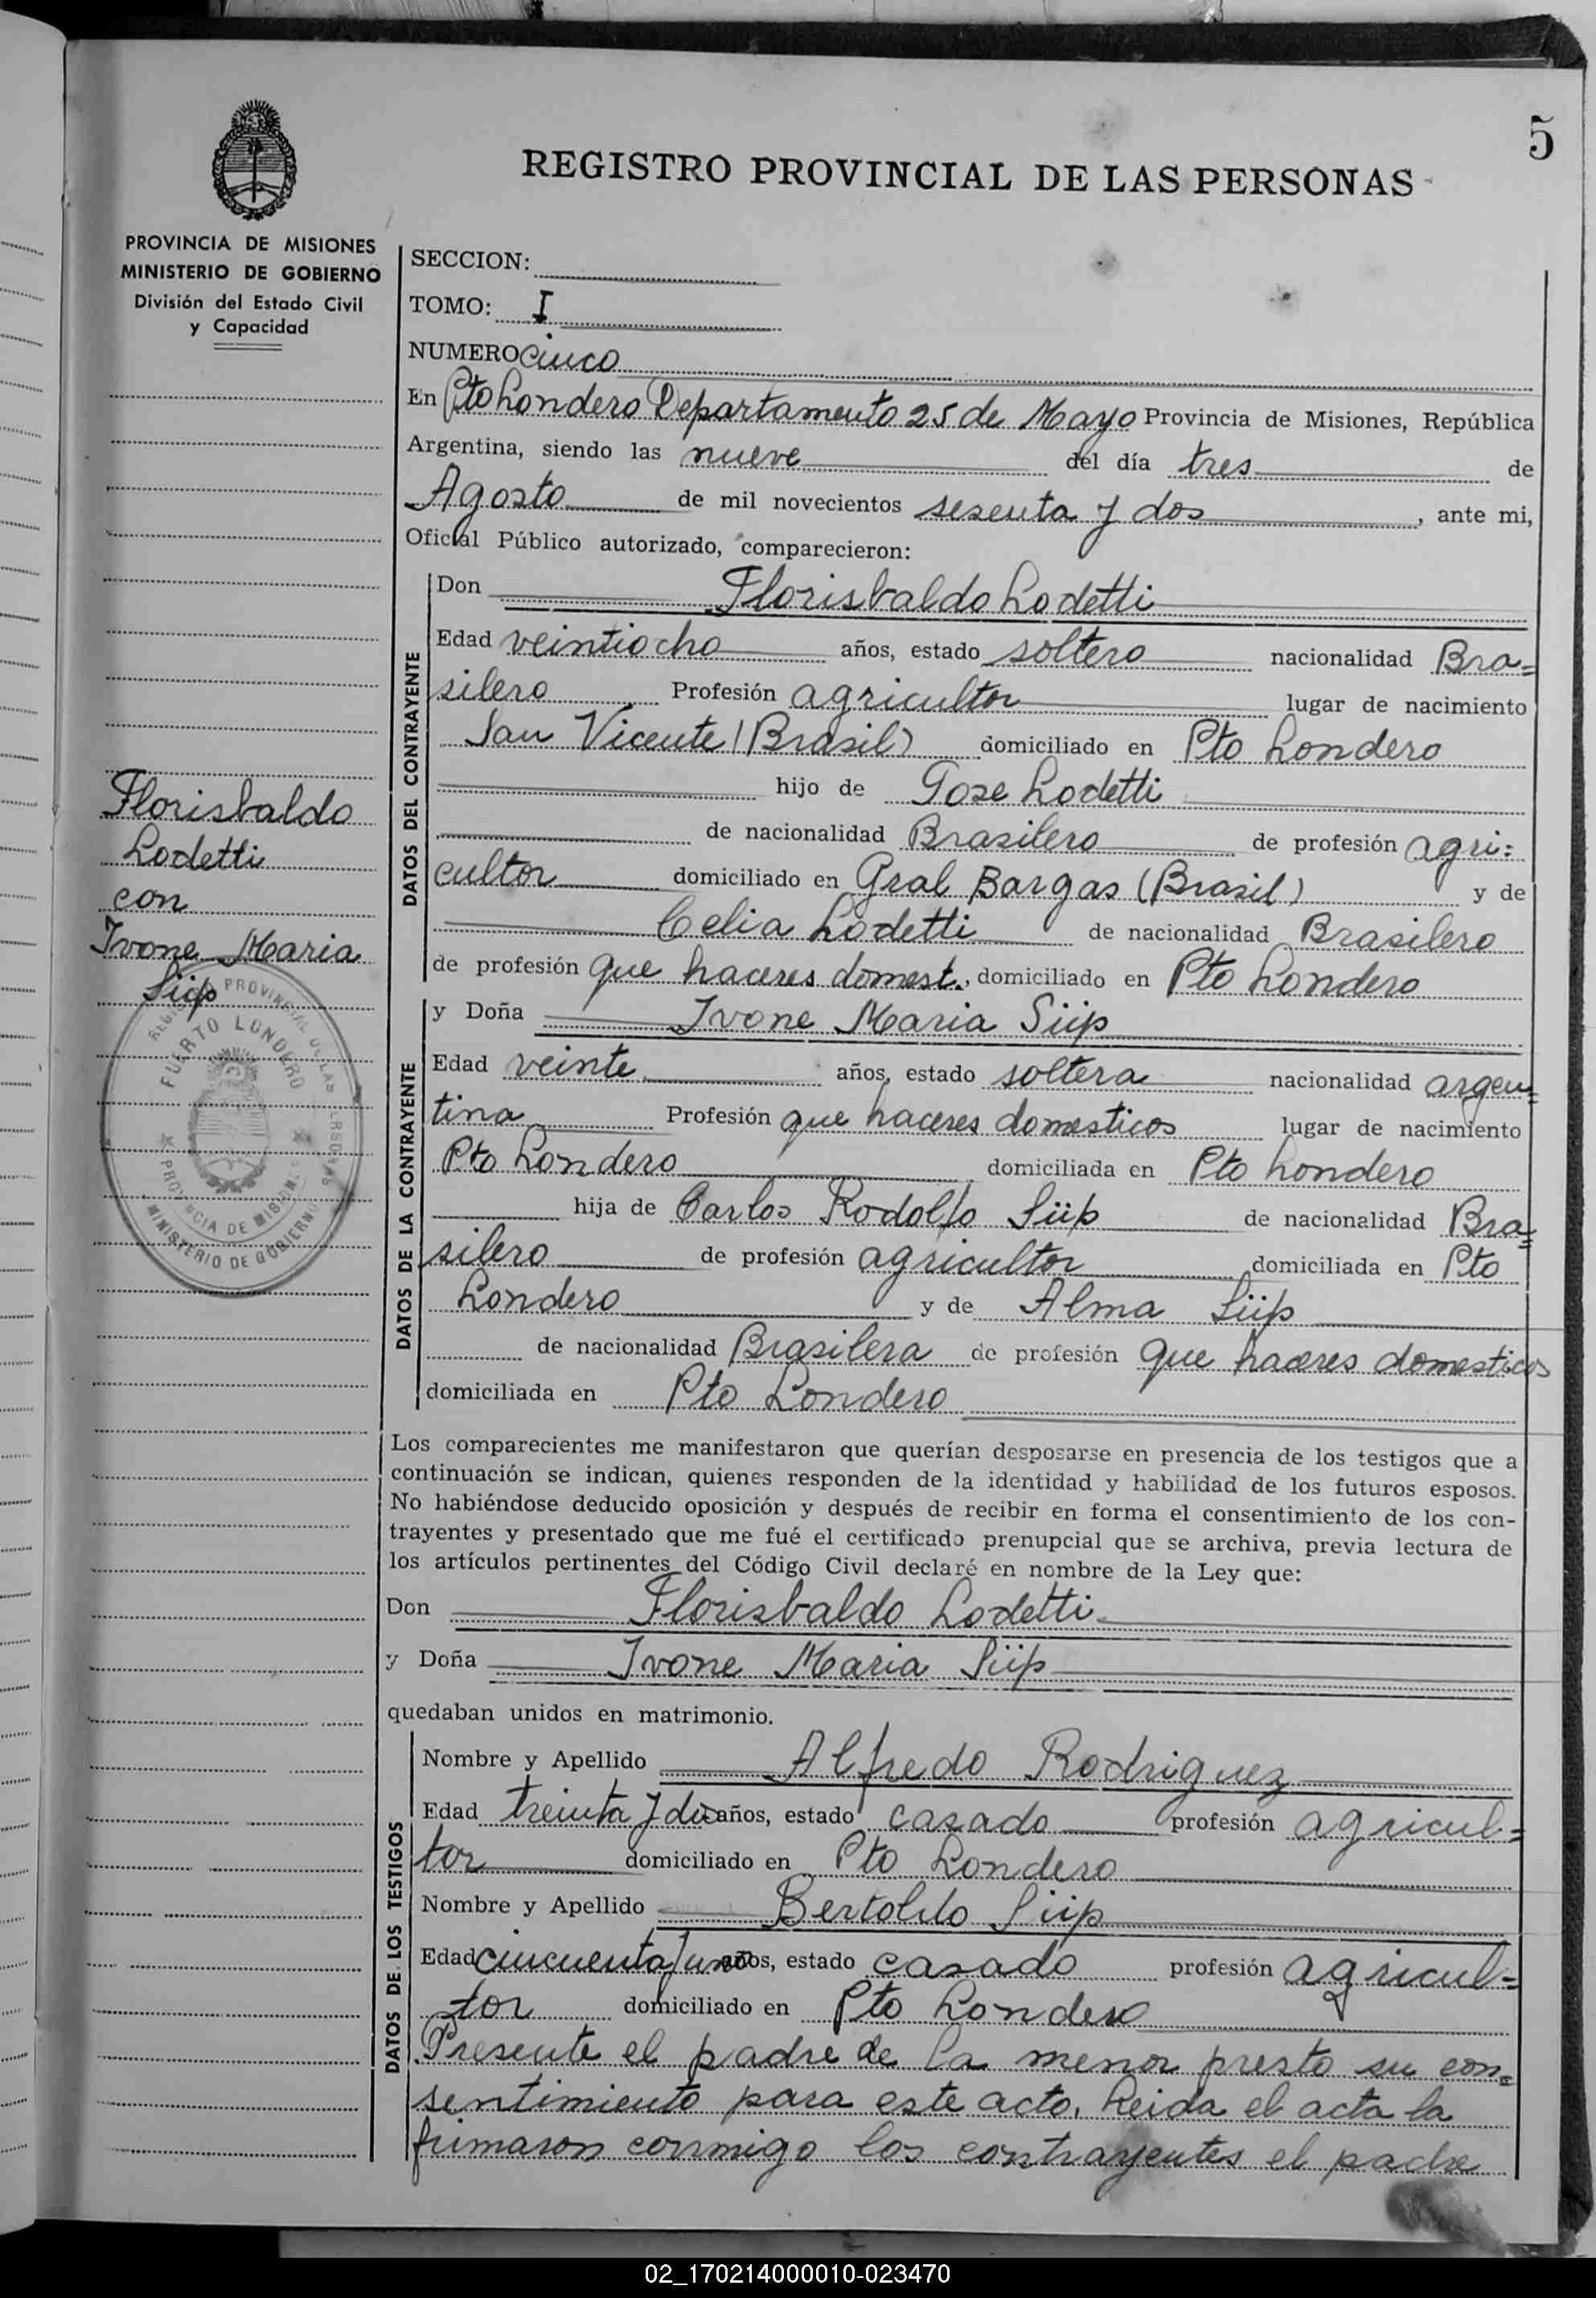 5
REGISTRO PROVINCIAL DE LAS PERSONAS
PROVINCIA DE MISIONES
MINISTERIO DE GOBIERNO
División del Estado Civil
y Capacidad
SECCION:
TOMO: I
NUMERO cinco
En Pto Londero Departamento 25 de Mayo Provincia de Misiones, República
Argentina, siendo las nueve del día tres de
Agosto de mil novecientos sesenta y dos, ante mi,
Oficial Público autorizado, comparecieron:
DATOS DEL CONTRAYENTE
Don Florisbaldo Lodetti
Edad veintiocho años, estado soltero nacionalidad Bra=
silero Profesión agricultor lugar de nacimiento
San Vicente (Brasil) domiciliado en Pto Londero
hijo de Jose Lodetti
de nacionalidad Brasilero de profesión agri=
cultor domiciliado en Gral Bargas (Brasil) y de
Celia Lodetti de nacionalidad Brasilero
de profesión que haceres domest., domiciliado en Pto Londero
DATOS DE LA CONTRAYENTE
y Doña Ivone Maria Siip
Edad veinte años, estado soltera nacionalidad argen=
tina Profesión que haceres domesticos lugar de nacimiento
Pto Londero domiciliada en Pto Londero
hija de Carlos Rodolfo Siip de nacionalidad Bra=
silero de profesión agricultor domiciliada en Pto
Londero y de Alma Siip
de nacionalidad Brasilera de profesión que haceres domesticos
domiciliada en Pto Londero
Los comparecientes me manifestaron que querían desposarse en presencia de los testigos que a
continuación se indican, quienes responden de la identidad y habilidad de los futuros esposos.
No habiéndose deducido oposición y después de recibir en forma el consentimiento de los con-
trayentes y presentado que me fué el certificado prenupcial que se archiva, previa lectura de
los artículos pertinentes del Código Civil declaré en nombre de la Ley que:
Don Florisbaldo Lodetti
y Doña Ivone Maria Siip
quedaban unidos en matrimonio.
DATOS DE LOS TESTIGOS
Nombre y Apellido Alfredo Rodriguez
Edad treinta y años, estado casado profesión agricul=
tor domiciliado en Pto Londero
Nombre y Apellido Bertoldo Siip
Edad cincuenta y un años, estado casado profesión agricul=
tor domiciliado en Pto Londero
Presente el padre de la menor presto su con=
sentimiento para este acto. Leida el acta la
firmaron conmigo los contrayentes el padre
Florisbaldo
Lodetti
con
Ivone Maria
Siip
REGISTRO PROVINCIAL DE LAS PERSONAS
PUERTO LONDERO
PROVINCIA DE MISIONES
MINISTERIO DE GOBIERNO
02_170214000010-023470